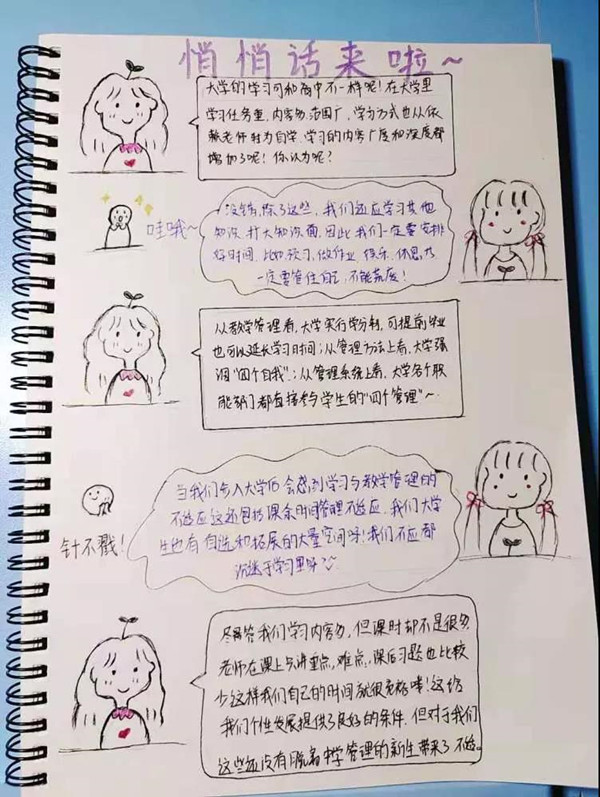 悄悄话来啦~
大学的学习可和高中不一样呢！在大学里
学习任务重，内容多，范围广，学习方式也从依
赖老师转为自学，学习的内容广度和深度都
增加了呢！你认为呢？
哇哦~
没错，除了这些，我们还应学习其他
知识，扩大知识面，因此我们一定要安排
好时间，比如预习、做作业、娱乐、休息，大
一定要管住自己，不能荒废！
从教学管理看，大学实行学分制，可提前毕业
也可以延长学习时间；从管理方法上看，大学强
调“四个自我”；从管理系统上看，大学各个职
能部门都直接参与学生的“四个管理”~
当我们步入大学后会感到学习与教学管理的
不适应这还包括课余时间管理不适应，我们大学
生也有自选和拓展的大量空间呀！我们不应都
沉迷于学习里呀
针不戳！
尽管我们学习内容多，但课时却不是很多
老师在课上只讲重点，难点，课后习题也比较
少这样我们自己的时间就很宽裕哇！这给
我们个性发展提供了良好的条件，但对于我们
这些还没有脱离中学管理的新生带来了不适。